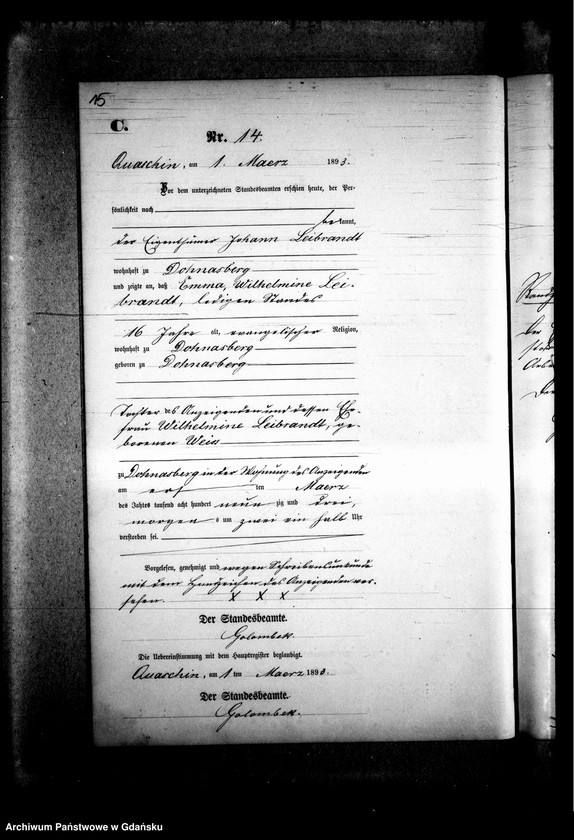 15
C.
Nr. 14.
Quaschin, am 1. Maerz 1893.
Vor dem unterzeichneten Standesbeamten erschien heute, der Per-
sönlichkeit nach
bekannt,
der Eigenthümer Johann Leibrandt
wohnhaft zu Dohnasberg
und zeigte an, daß Emma, Wilhelmine Lei-
brandt, ledigen Standes
16 Jahre alt, evangelischer Religion,
wohnhaft zu Dohnasberg
geboren zu Dohnasberg
Tochter des Anzeigenden und dessen Ehe-
frau Wilhelmine Leibrandt, ge-
borenen Weiss
zu Dohnasberg in der Wohnung des Anzeigenden
am ersten Maerz
des Jahres tausend acht hundert neunzig und drei,
morgens um zwei ein halb Uhr
verstorben sei.
Vorgelesen, genehmigt und wegen Schreibensunkunde
mit dem Handzeichen des Anzeigenden ver-
sehen. X X X
Der Standesbeamte.
Golombek.
Die Uebereinstimmung mit dem Hauptregister beglaubigt.
Quaschin, am 1 ten Maerz 1893.
Der Standesbeamte.
Golombek.
Archiwum Państwowe w Gdańsku